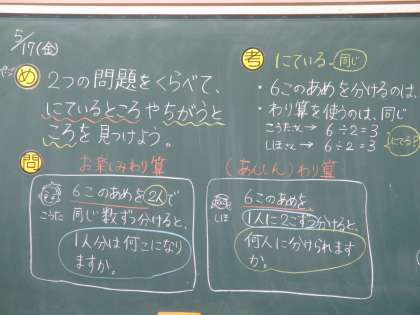 5/17(金)
め 2つの問題をくらべて、
にているところやちがうと
ころを見つけよう。
問 お楽しみわり算
こうた
6このあめを2人で
同じ数ずつ分けると、
1人分は何こになり
ますか。
考 にている。同じ
・6このあめを分けるのは、
・わり算を使うのは、同じ
こうたさん→ 6÷2=3
しほさん→ 6÷2=3
にてる
(あんしん)わり算
しほ
6このあめを、
1人に2こずつ分けると、
何人に分けられます
か。